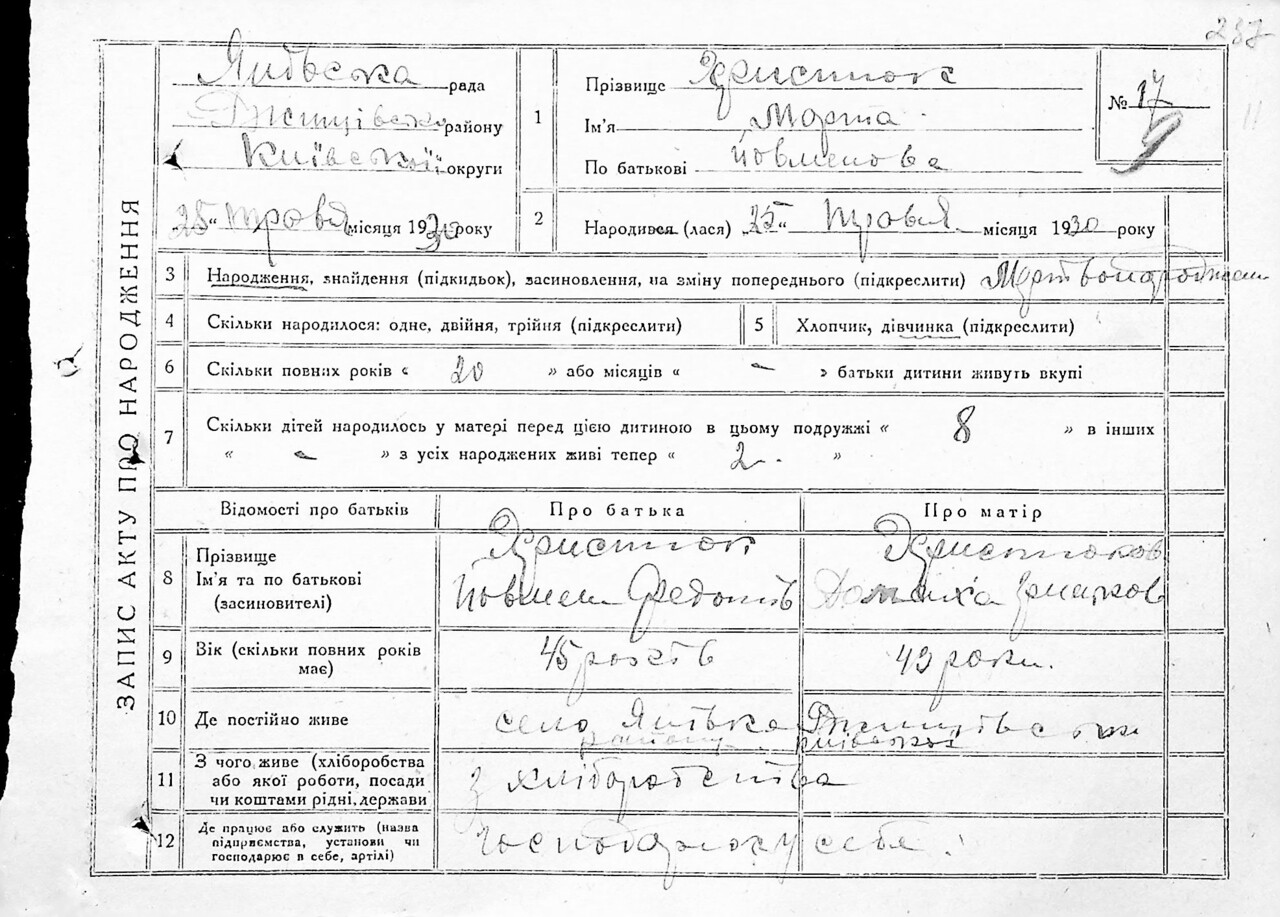 237
ЗАПИС АКТУ ПРО НАРОДЖЕННЯ
рада
району
Київської округи
„25“ травня місяця 1930 року
1
Прізвище Христюк
Ім'я Марта
По батькові
№ 17
2
Народився (лася) „25“ травня місяця 1930 року
3 Народження, знайдення (підкидьок), засиновлення, на зміну попереднього (підкреслити)
4 Скільки народилося: одне, двійня, трійня (підкреслити)
5 Хлопчик, дівчинка (підкреслити)
6 Скільки повних років « 20 » або місяців « - » батьки дитини живуть вкупі
7 Скільки дітей народилось у матері перед цією дитиною в цьому подружжі « 8 » в інших
« - » з усіх народжених живі тепер « 2 »
Відомості про батьків
Про батька
Про матір
8 Прізвище
Ім'я та по батькові
(засиновителі)
Христюк
Федотів
9 Вік (скільки повних років
має)
45 років
43 роки.
10 Де постійно живе
село
району
11 З чого живе (хліборобства
або якої роботи, посади
чи коштами рідні, держави
з хліборобства
12 Де працює або служить (назва
підприємства, установи чи
господарює в себе, артілі)
себе